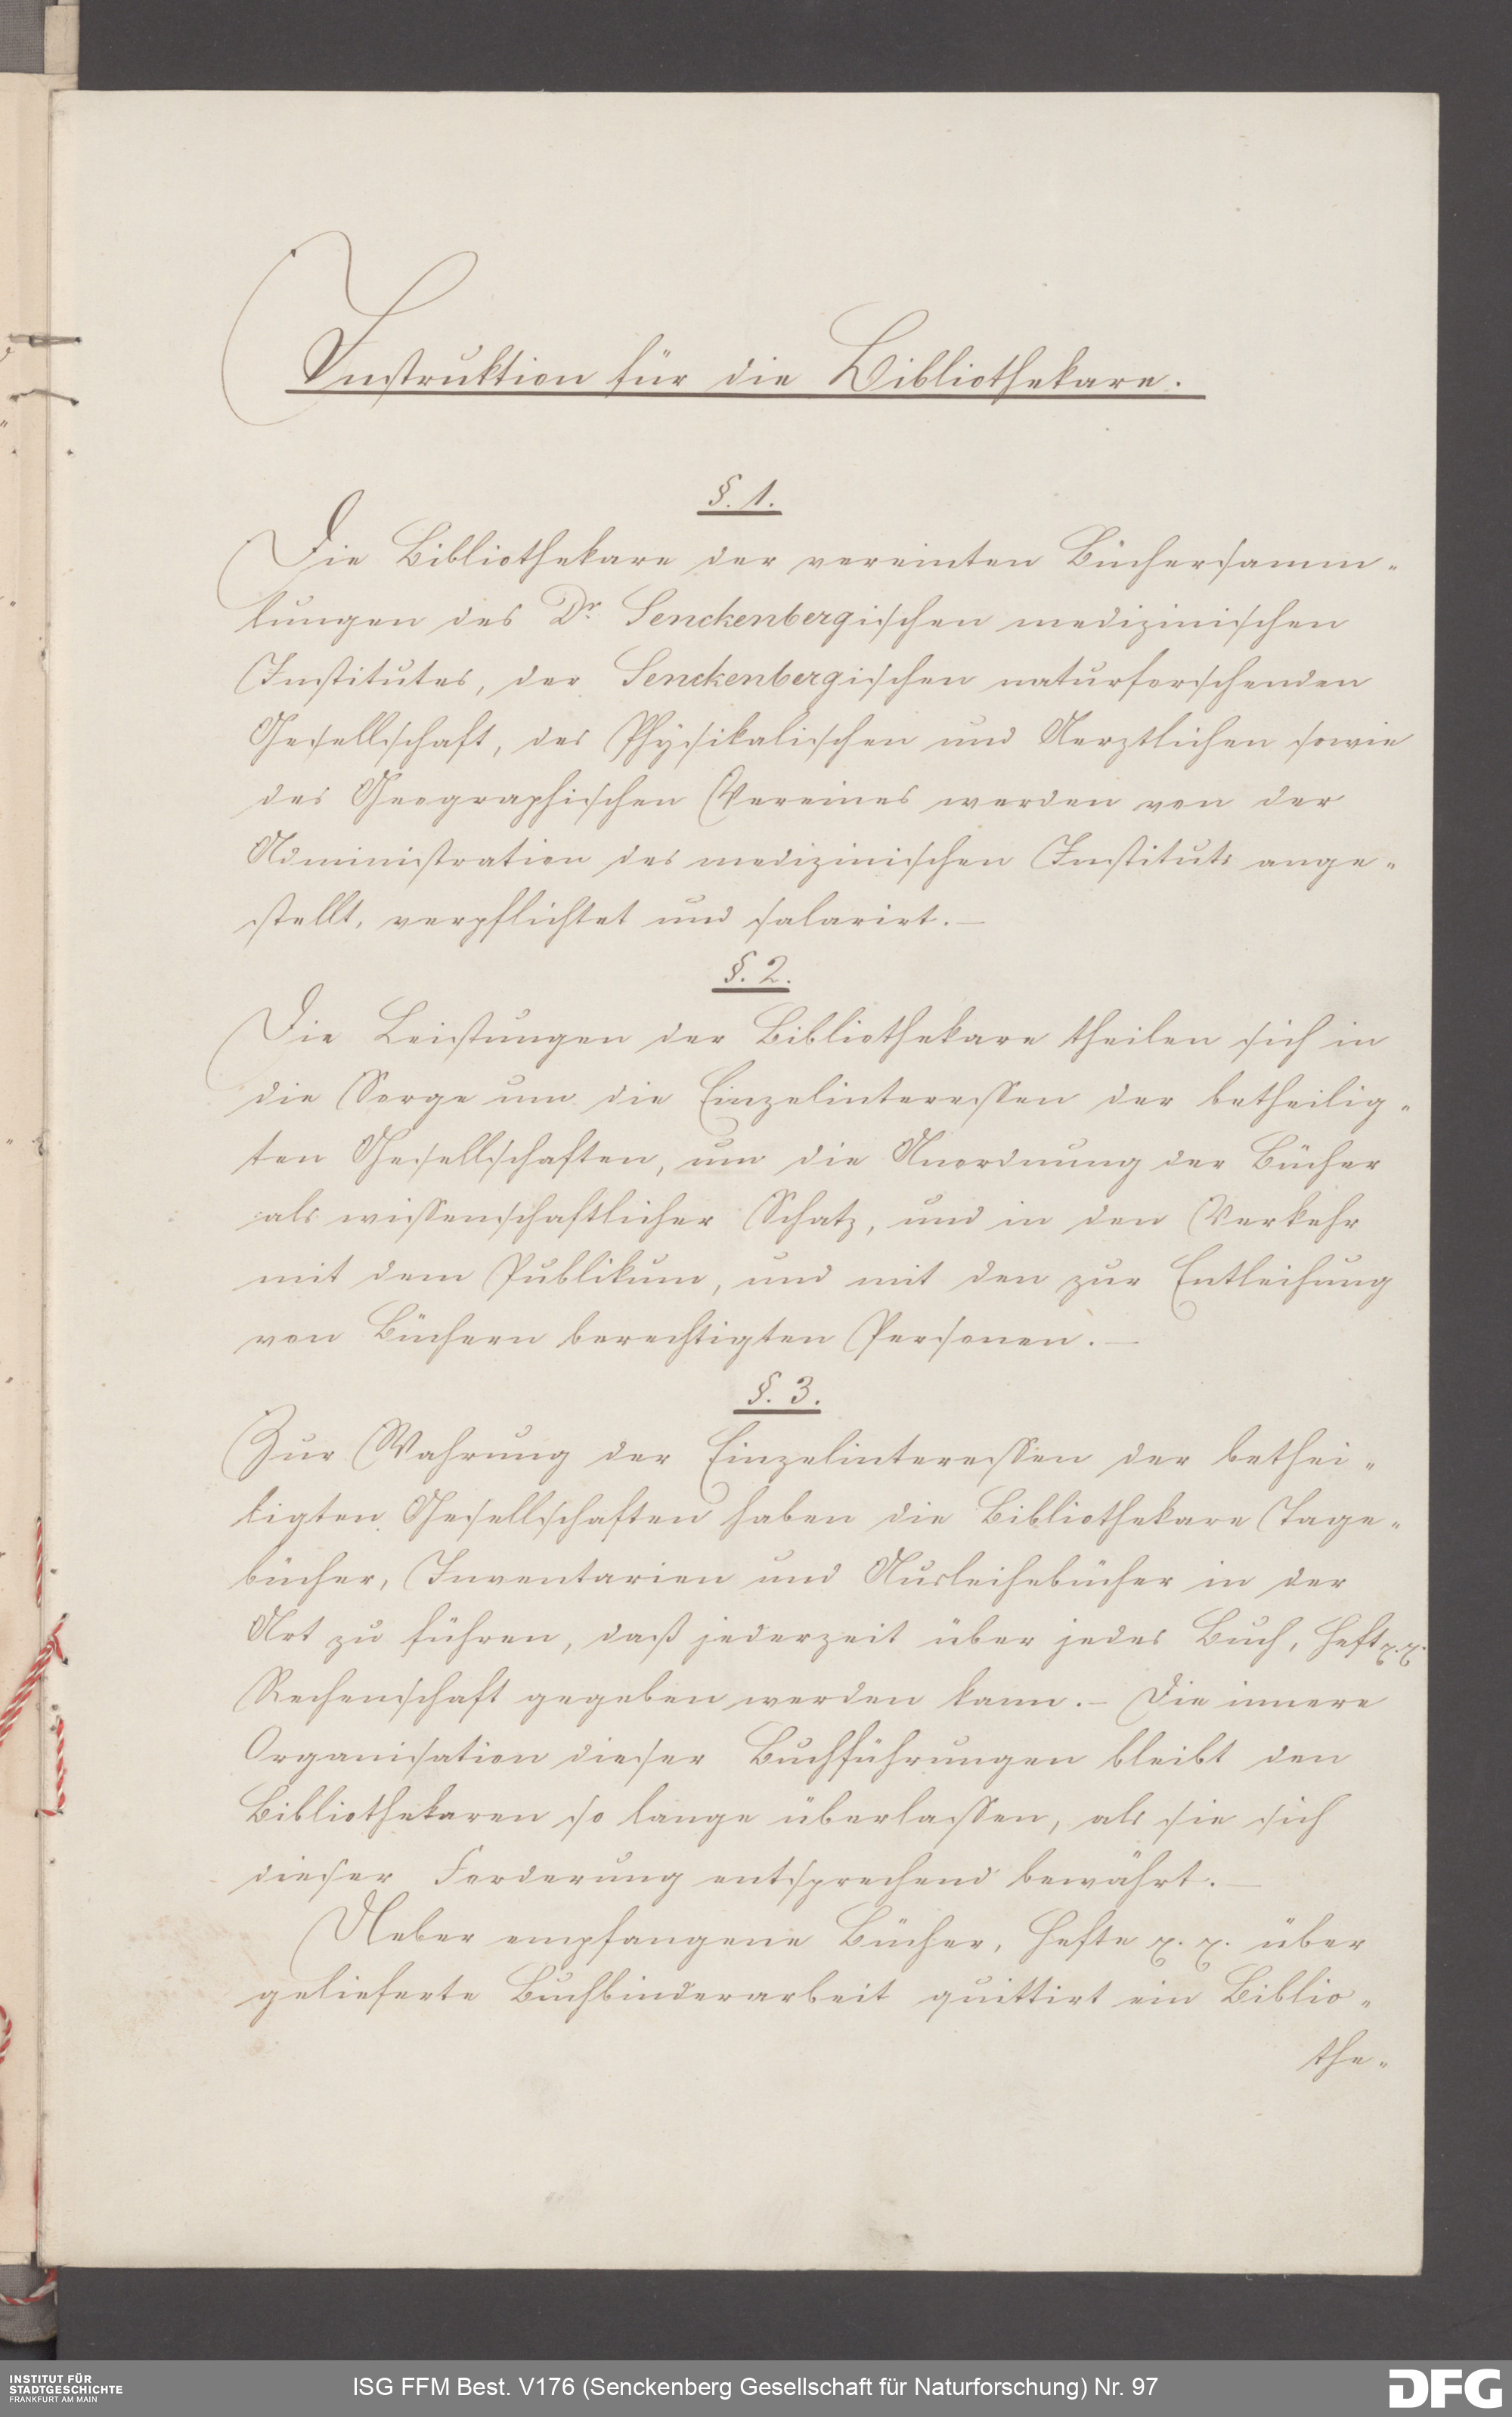 Instruktion für die Bibliothekare.
§. 1.
Die Bibliothekare der vereinten Büchersamm-
lungen des Dr. Senckenbergischen medizinischen
Institutes, der Senckenbergischen naturforschenden
Gesellschaft, des Physikalischen und Aerztlichen sowie
des Geographischen Vereines werden von der
Administration des medizinischen Instituts ange-
stellt, verpflichtet und salarirt.—
§. 2.
Die Leistungen der Bibliothekare theilen sich in
die Sorge um die Einzelinteressen der betheilig-
ten Gesellschaften, um die Anordnung der Bücher
als wissenschaftlicher Schatz, und in den Verkehr
mit dem Publikum, und mit den zur Entleihung
von Büchern berechtigten Personen.—
§. 3.
Zur Wahrung der Einzelinteressen der bethei-
ligten Gesellschaften haben die Bibliothekare Tage-
bücher, Inventarien und Ausleihebücher in der
Art zu führen, daß jederzeit über jedes Buch, Heft x. x.
Rechenschaft gegeben werden kann.— Die innere
Organisation dieser Buchführungen bleibt den
Bibliothekaren so lange überlassen, als sie sich
dieser Forderung entsprechend bewährt.—
Ueber empfangene Bücher, Hefte x. x. über
gelieferte Buchbinderarbeit quittirt ein Biblio-
the-
INSTITUT FÜR
STADTGESCHICHTE
FRANKFURT AM MAIN
ISG FFM Best. V176 (Senckenberg Gesellschaft für Naturforschung) Nr. 97
DFG